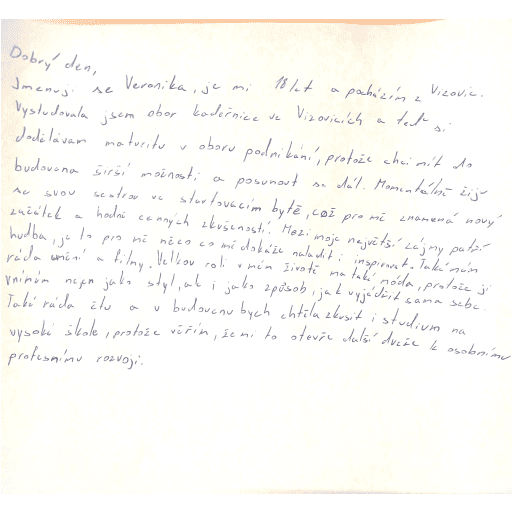 Dobrý den,
Jmenuji se Veronika, je mi 18 let a pocházím z Vizovic.
Vystudovala jsem obor kadeřnice ve Vizovicích a teď si
dodělávam maturitu v oboru podnikání, protože chci mít do
budoucna širší možnosti a posunout se dál. Momentálně žiji
se svou sestrou ve startovacím bytě, což pro mě znamená nový
začátek a hodně cenných zkušeností. Mezi moje největší zájmy patří
hudba, je to pro mě něco co mě dokáže naladit i inspirovat. Také mám
ráda umění a filmy. Velkou roli v mém životě má také móda, protože ji
vnímám nejen jako styl, ale i jako způsob, jak vyjádřit sama sebe.
Také ráda čtu a v budoucnu bych chtěla zkusit i studium na
vysoké škole, protože věřím, že mi to otevře další dveře k osobnímu
profesnímu rozvoji.